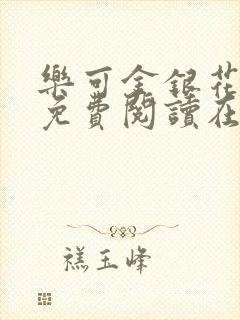 樂可金銀花
免費閱讀在
禚玉峰